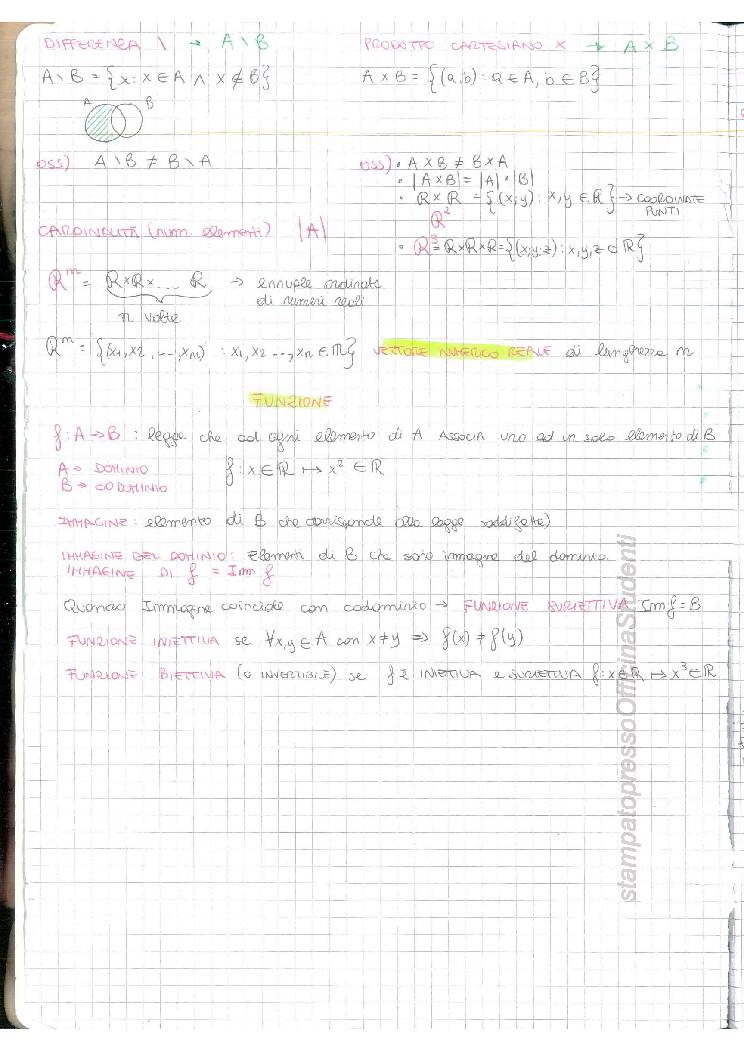 DIFFERENZA \ → A \ B
A \ B = {x : x ∈ A ∧ x ∉ B}
A B
OSS) A \ B ≠ B \ A
PRODOTTO CARTESIANO X → A × B
A × B = {(a,b) : a ∈ A, b ∈ B}
OSS) • A × B ≠ B × A
• |A × B| = |A| • |B|
• R × R = {(x;y) : x,y ∈ R} → COORDINATE PUNTI
R²
• R³ = R×R×R = {(x;y;z) : x,y,z ∈ R}
CARDINALITÀ (num. elementi) |A|
Rⁿ = R×R×... R → ennuple ordinate
n volte di numeri reali
Rⁿ = {(x₁, x₂, ..., xₙ) : x₁, x₂ ..., xₙ ∈ R} VETTORE NUMERICO REALE di lunghezza n
FUNZIONE
f : A → B : legge che ad ogni elemento di A ASSOCIA uno ed un solo elemento di B
A → DOMINIO f : x ∈ R ↦ x² ∈ R
B → CODOMINIO
IMMAGINE : elemento di B che corrisponde alla legge
IMMAGINE DEL DOMINIO : Elementi di B che sono immagine del dominio
IMMAGINE DI f = Imm f
Quando Immagine coincide con codominio → FUNZIONE SURIETTIVA Imf = B
FUNZIONE INIETTIVA se ∀x,y ∈ A con x ≠ y ⇒ f(x) ≠ f(y)
FUNZIONE BIETTIVA (o INVERTIBILE) se f è INIETTIVA e SURIETTIVA f : x ∈ R ↦ x³ ∈ R
stampatopressoOfficinaStudenti